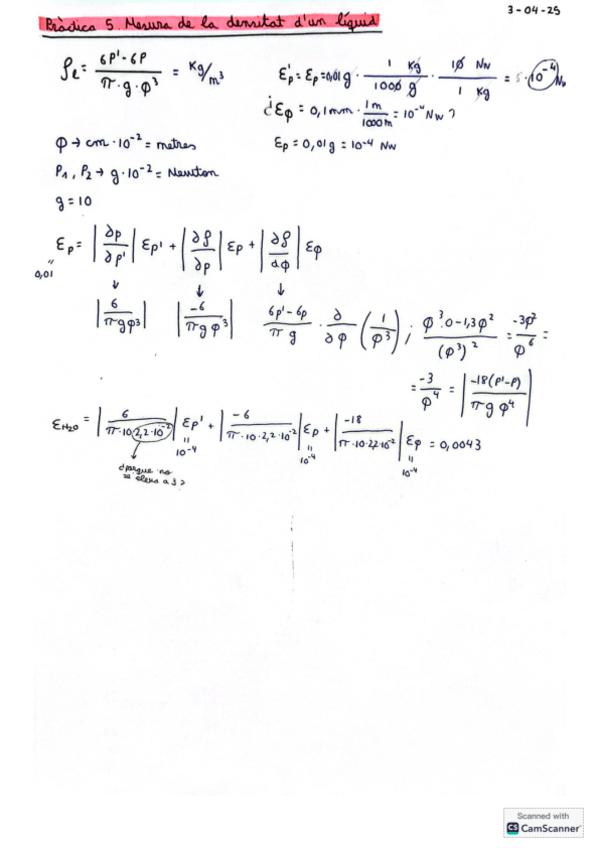 3-04-25
Pràctica 5. Mesura de la densitat d'un líquid
ρₑ = (6P' - 6P) / (π · g · φ³) = Kg/m³
Ep' = Ep = 0,01 g · (1 Kg / 1000 g) · (10 Nw / 1 Kg) = 10⁻⁴ Nw
¿Eφ = 0,1 mm · (1 m / 1000 m) = 10⁻⁴ Nw?
φ → cm · 10⁻² = metres
Ep = 0,01 g = 10⁻⁴ Nw
P₁, P₂ → g · 10⁻² = Newton
g = 10
Ep = |∂p/∂p'| Ep' + |∂ρ/∂p| Ep + |∂ρ/∂φ| Eφ
" 0,01
|6 / πgφ³| |-6 / πgφ³| (6p' - 6p) / (πg) · ∂/∂φ (1/φ³) ; (φ³·0 - 1,3φ²) / (φ³)² = -3φ² / φ⁶ =
= -3 / φ⁴ = |-18(p'-p) / πgφ⁴|
E H₂O = |6 / (π·10·2,2·10⁻²)| Ep' + |-6 / (π·10·2,2·10⁻²)| Ep + |-18 / (π·10·2,2·10⁻²)| Eφ = 0,0043
" 10⁻⁴ " 10⁻⁴ " 10⁻⁴
¿porque no
se eleva a 3?
Scanned with
CS CamScanner